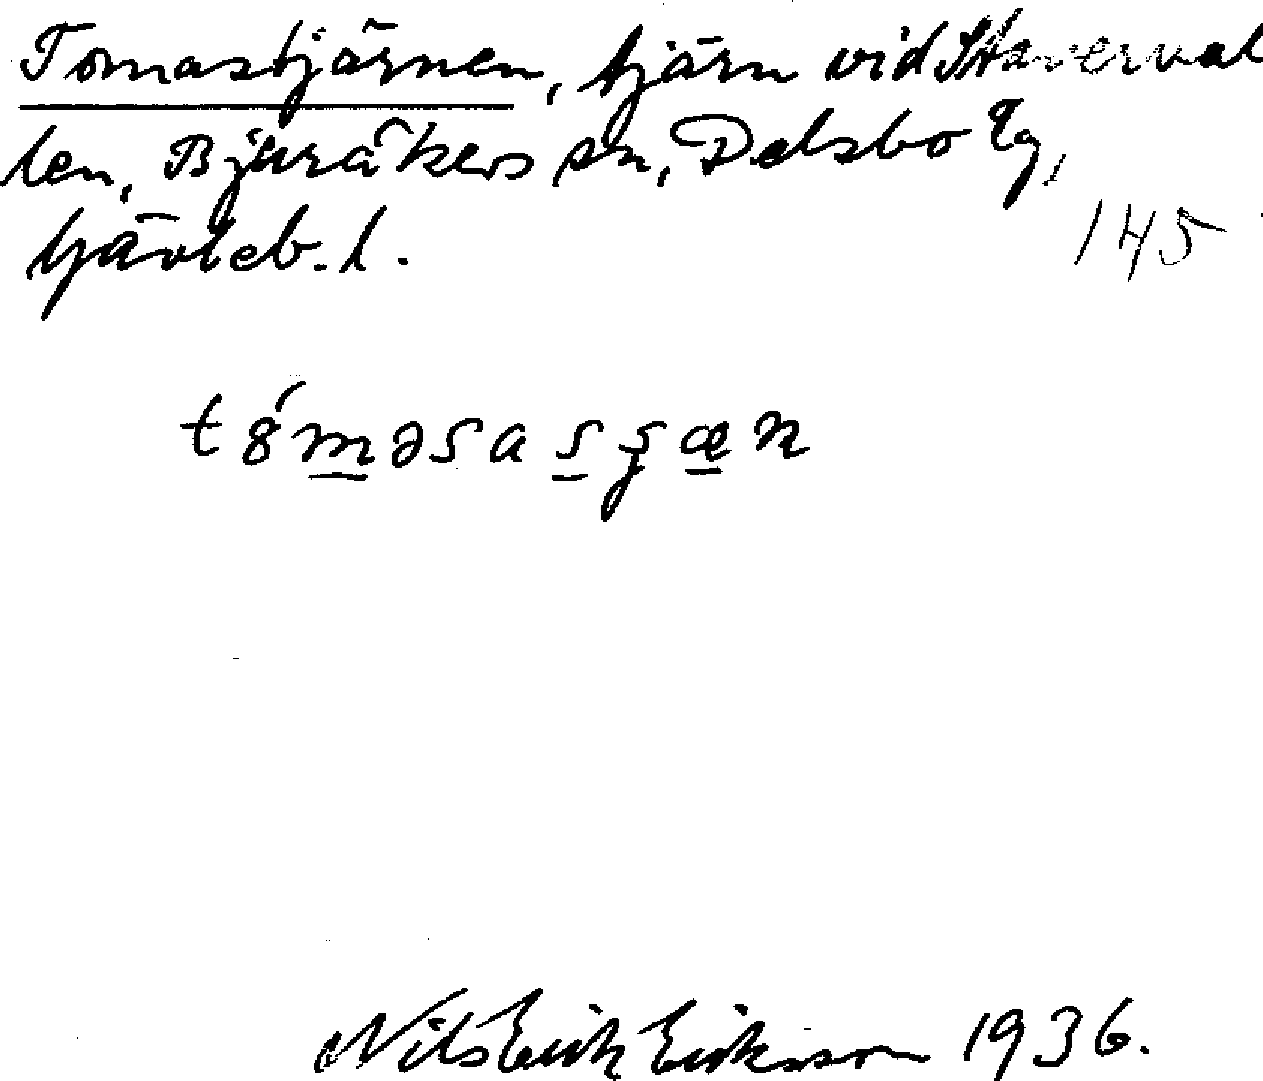 Tomastjärnen, tjärn vid Staverval
len, Bjuråkers sn, Delsbo tg,
Gävleb. l.
145
Nils Erik Eriksson 1936.